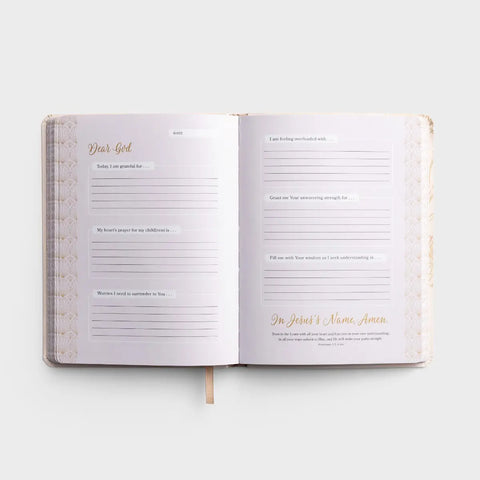 DATE
Dear God
Today, I am grateful for . . .
My heart's prayer for my child(ren) is . . .
Worries I need to surrender to You . . .
I am feeling overloaded with . . .
Grant me Your unwavering strength for . . .
Fill me with Your wisdom as I seek understanding in . . .
In Jesus's Name, Amen.
Trust in the LORD with all your heart and lean not on your own understanding;
in all your ways submit to Him, and He will make your paths straight.